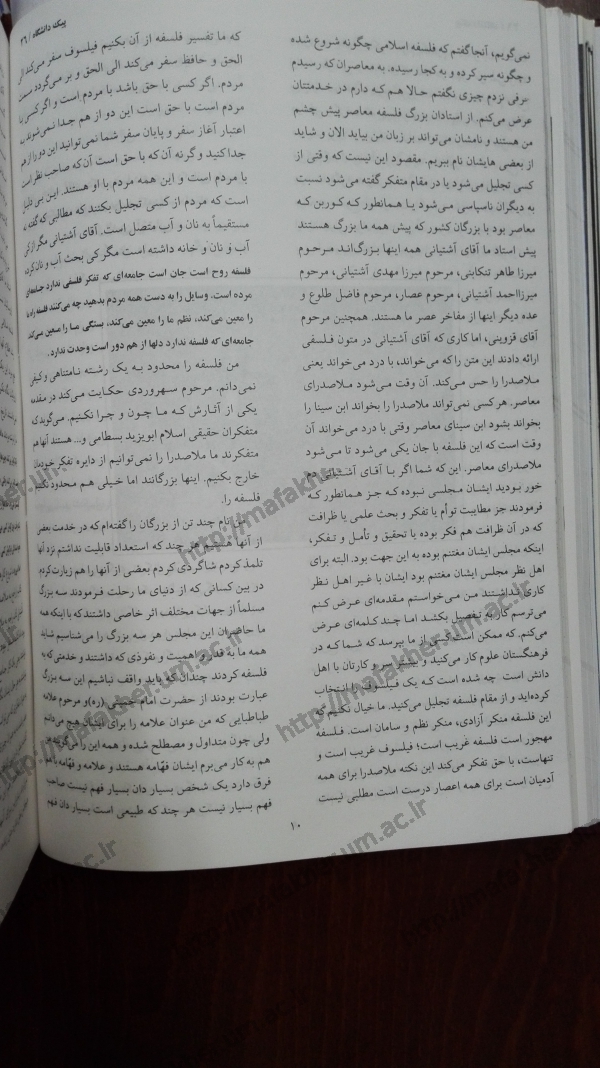 پیک دانشگاه / ۲۶
نمی‌گویم، آنجا گفتم که فلسفه اسلامی چگونه شروع شده
و چگونه سیر کرده و به کجا رسیده. به معاصران که رسیدم
حرفی نزدم چیزی نگفتم حالا هم که دارم در خدمتتان
عرض می‌کنم. از استادان بزرگ فلسفه معاصر پیش چشم
من هستند و نامشان می‌تواند بر زبان من بیاید الان و شاید
از بعضی هایشان نام ببریم. مقصود این نیست که وقتی از
کسی تجلیل می‌شود یا در مقام متفکر گفته می‌شود نسبت
به دیگران ناسپاسی می‌شود یا همانطور که کوربن که
معاصر بود با بزرگان کشور که پیش همه ما بزرگ هستند
پیش استاد ما آقای آشتیانی همه اینها بزرگ‌اند مرحوم
میرزا طاهر تنکابنی، مرحوم میرزا مهدی آشتیانی، مرحوم
میرزااحمد آشتیانی، مرحوم عصار، مرحوم فاضل طلوع و
عده دیگر اینها از مفاخر عصر ما هستند. همچنین مرحوم
آقای قزوینی، اما کاری که آقای آشتیانی در متون فلسفی
ارائه دادند این متن را که می‌خواند، با درد می‌خواند یعنی
ملاصدرا را حس می‌کند. آن وقت می‌شود ملاصدرای
معاصر. هر کسی نمی‌تواند ملاصدرا را بخواند ابن سینا را
بخواند بشود ابن سینای معاصر وقتی با درد می‌خواند آن
وقت است که این فلسفه با جان یکی می‌شود تا می‌شود
ملاصدرای معاصر. این که شما اگر با آقای آشتیانی دم
خور بودید ایشان مجلسی نبوده که جز همانطور که
فرمودند جز مطایبت توأم با تفکر و بحث علمی با ظرافت
که در آن ظرافت هم فکر بوده با تحقیق و تأمل و تفکر،
اینکه مجلس ایشان مغتنم بوده به این جهت بود. البته برای
اهل نظر مجلس ایشان مغتنم بود ایشان با غیر اهل نظر
کاری نداشتند من می‌خواستم مقدمه‌ای عرض کنم
می‌ترسم کار به تفصیل بکشد اما چند کلمه‌ای عرض
می‌کنم. که ممکن است کسی از ما بپرسد که شما که در
فرهنگستان علوم کار می‌کنید و بیشتر سر و کارتان با اهل
دانش است چه شده است که یک فیلسوف را انتخاب
کرده‌اید و از مقام فلسفه تجلیل می‌کنید. ما خیال نکنیم که
این فلسفه منکر آزادی، منکر نظم و سامان است. فلسفه
مهجور است فلسفه غریب است؛ فیلسوف غریب است و
تنهاست، با حق تفکر می‌کند این نکته ملاصدرا برای همه
آدمیان است برای همه اعصار درست است مطلبی نیست
که ما تفسیر فلسفه از آن بکنیم فیلسوف سفر می‌کند الی
الحق و حافظ سفر می‌کند الی الحق و بر می‌گردد سمت
مردم. اگر کسی با حق باشد با مردم است و اگر کسی با
مردم است با حق است این دو از هم جدا نمی‌شوند به
اعتبار آغاز سفر و پایان سفر شما نمی‌توانید این دو را از هم
جدا کنید و گرنه آن که با حق است آن که صاحب نظر است
با مردم است و این همه مردم با او هستند. این بی دلیل
است که مردم از کسی تجلیل بکنند که مطالبی که گفته نه
مستقیماً به نان و آب متصل است. آقای آشتیانی مگر از کی
آب و نان و خانه داشته است مگر کی بحث آب و نان کرده
فلسفه روح است جان است جامعه‌ای که تفکر فلسفی ندارد جامعه‌ای
مرده است. وسایل را به دست همه مردم بدهید چه می‌کنند فلسفه راه ما
را معین می‌کند، نظم ما را معین می‌کند، بستگی ما را معین می‌کند
جامعه‌ای که فلسفه ندارد دلها از هم دور است وحدت ندارد.
من فلسفه را محدود به یک رشته نامتناهی و کیفی
نمی‌دانم. مرحوم سهروردی حکایت می‌کند در مقدمه
یکی از آثارش که ما چون و چرا نکنیم. می‌گوید که
متفکران حقیقی اسلام ابویزید بسطامی و... هستند آنها هم
متفکرند ما ملاصدرا را نمی‌توانیم از دایره تفکر خودمان
خارج بکنیم. اینها بزرگانند اما خیلی هم محدود نکنیم
فلسفه را.
من نام چند تن از بزرگان را گفته‌ام که در خدمت بعضی
از آنها هستیم هر چند که استعداد قابلیت نداشتم نزد آنها
تلمذ کردم شاگردی کردم بعضی از آنها را هم زیارت کردم
در بین کسانی که از دنیای ما رحلت فرمودند سه بزرگ
مسلماً از جهات مختلف اثر خاصی داشتند که با اینکه همه
ما حاضران این مجلس هر سه بزرگ را می‌شناسیم شاید
همه ما به قدر و اهمیت و نفوذی که داشتند و خدمتی که به
فلسفه کردند چندان که باید واقف نباشیم این سه بزرگ
عبارت بودند از حضرت امام خمینی (ره) و مرحوم علامه
طباطبایی که من عنوان علامه را برای ایشان هیچ می دانم
ولی چون متداول و مصطلح شده و همه این را می‌گویند من
هم به کار می‌برم ایشان فهّامه هستند و علامه و فهّامه با هم
فرق دارد یک شخص بسیار دان بسیار فهم نیست صاحب
فهم بسیار نیست هر چند که طبیعی است بسیار دان فهم
۱۰
http://mafakher.um.ac.ir
http://mafakher.um.ac.ir
http://mafakher.um.ac.ir
http://mafakher.um.ac.ir